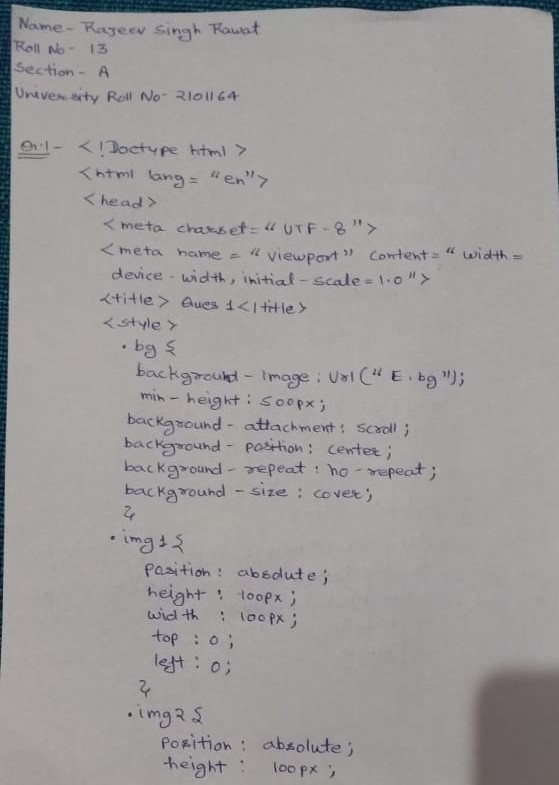 Name - Rajeev Singh Rawat
Roll No - 13
Section - A
University Roll No - 2101164
Qn.1 - <!Doctype html>
<html lang = "en">
<head>
<meta charset = "UTF-8">
<meta name = "viewport" content = "width =
device-width, initial-scale = 1.0">
<title> Ques 1</title>
<style>
.bg {
background-image : url("E.bg");
min-height : 500px;
background-attachment : scroll;
background-position : center;
background-repeat : no-repeat;
background-size : cover;
}
.img1{
position : absolute;
height : 100px;
width : 100px;
top : 0;
left : 0;
}
.img2{
position : absolute;
height : 100px;